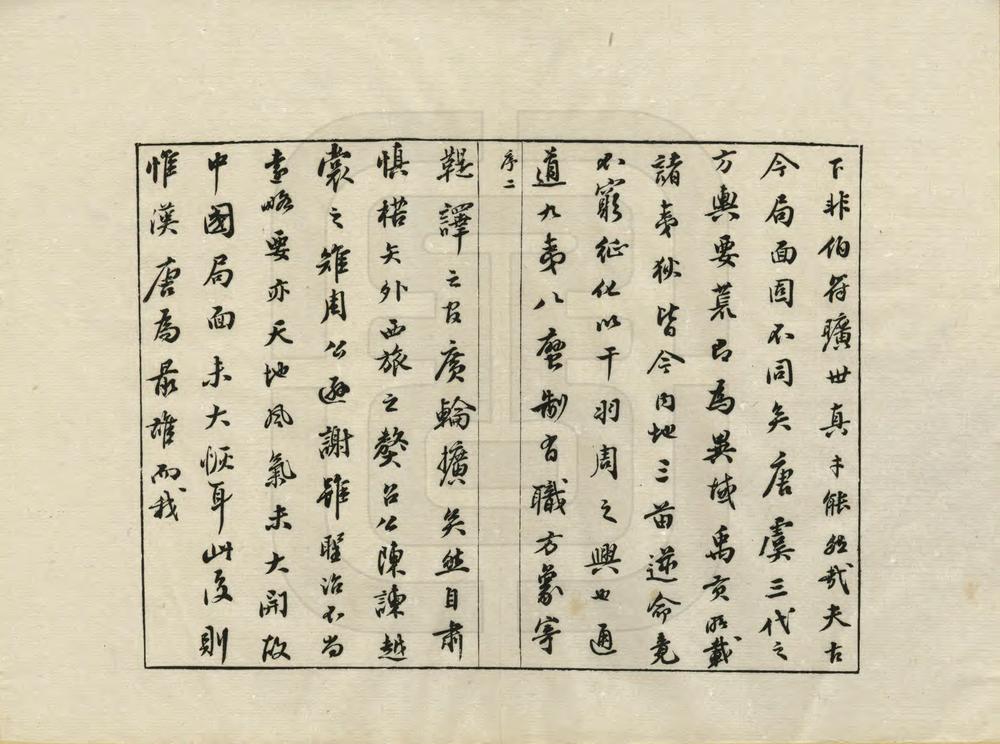 下非伯符曠世真才能然哉夫古
今局面固不同矣唐虞三代之
方輿要荒即為異域禹貢所載
諸夷狄皆今內地三苗逆命竟
不窮征化以干羽周之興也通
道九夷八蠻制有職方象寄
序二
鞮譯之官廣輪擴矣然自肅
慎楛矢外西旅之獒召公陳諫越
裳之雉周公遜謝雖聖治不尚
遠略要亦天地風氣未大開故
中國局面未大恢耳此後則
惟漢唐為最雄而我